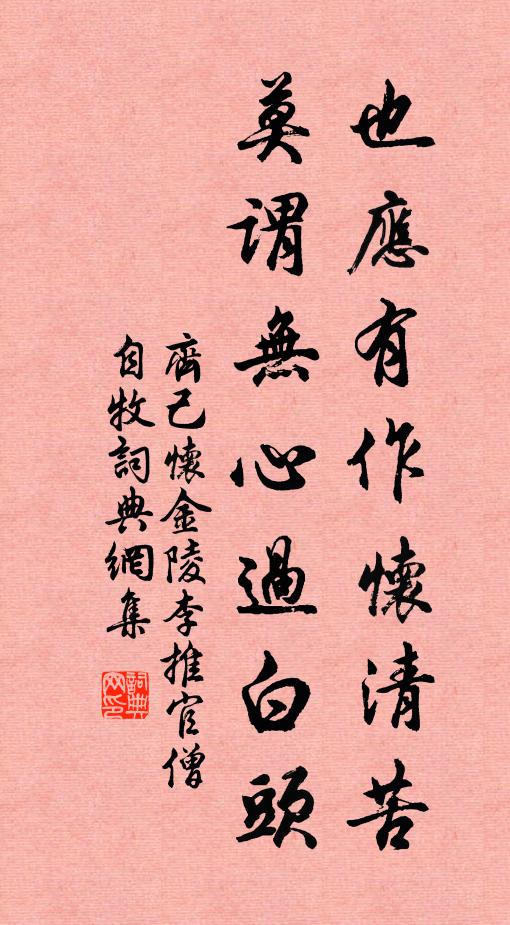 也應有作懷清苦
莫謂無心過白頭
齊己懷金陵李推官僧
自牧詞典網集
詞典
网印